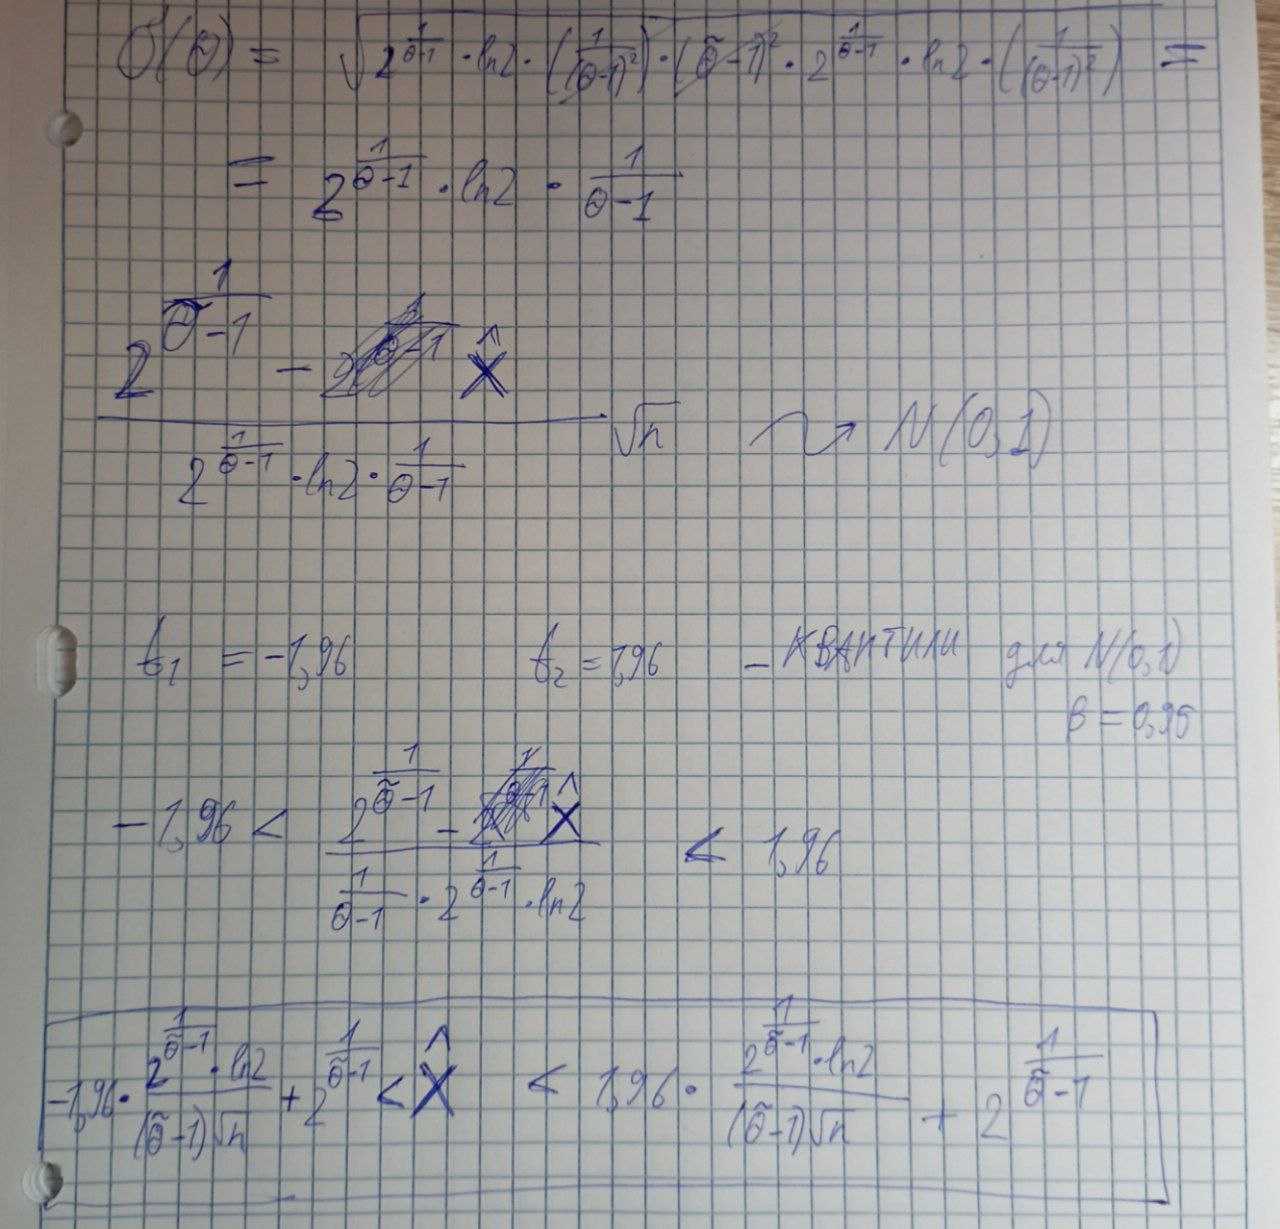 σ(θ) = √(2^(1/(θ-1)) · ln2 · (1/(θ-1)²) · (θ̃-1)² · 2^(1/(θ-1)) · ln2 · (1/(θ-1)²)) =
= 2^(1/(θ-1)) · ln2 · 1/(θ-1)
(2^(1/(θ̃-1)) - X̂) / (2^(1/(θ-1)) · ln2 · 1/(θ-1)) √n ⇝ N(0,1)
t₁ = -1,96 t₂ = 1,96 - КВАНТИЛИ для N(0,1)
β = 0,95
-1,96 < (2^(1/(θ̃-1)) - X̂) / (1/(θ-1) · 2^(1/(θ-1)) · ln2) < 1,96
-1,96 · (2^(1/(θ̃-1)) · ln2) / ((θ̃-1)√n) + 2^(1/(θ̃-1)) < X̂ < 1,96 · (2^(1/(θ̃-1)) · ln2) / ((θ̃-1)√n) + 2^(1/(θ̃-1))